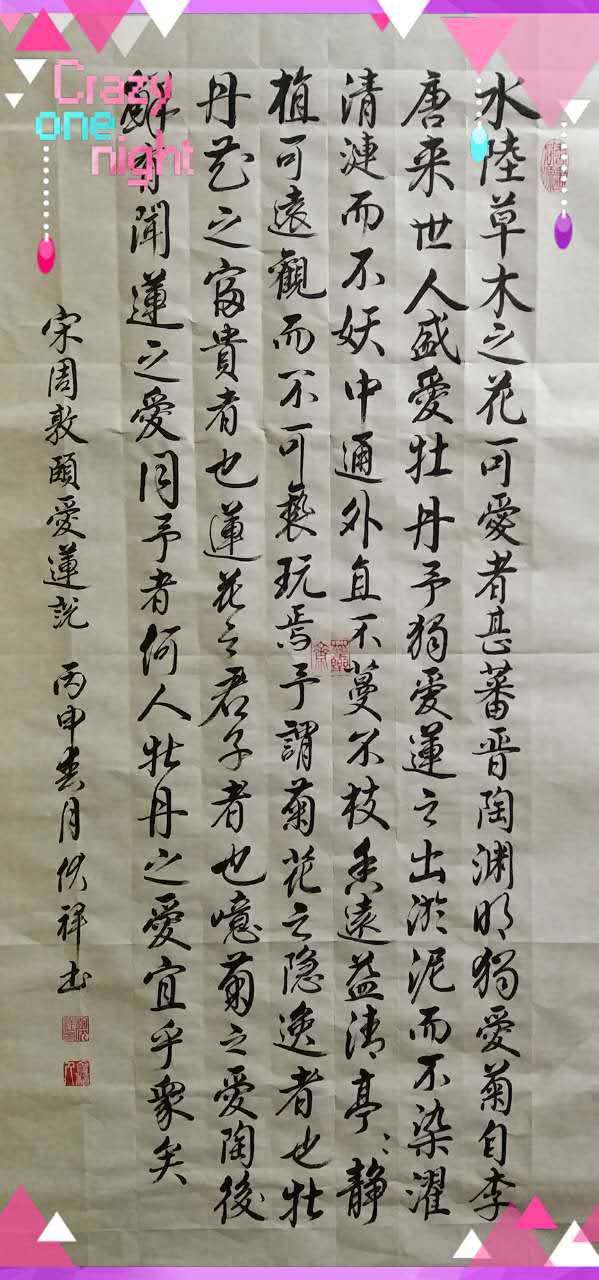 Crazy
one
night
水陸草木之花可愛者甚蕃晋陶渊明獨愛菊自李
唐来世人盛愛牡丹予獨愛蓮之出淤泥而不染濯
清漣而不妖中通外直不蔓不枝香遠益清亭〻静
植可遠觀而不可褻玩焉予謂菊花之隐逸者也牡
丹花之富貴者也蓮花之君子者也噫菊之愛陶後
鮮有聞蓮之愛同予者何人牡丹之愛宜乎衆矣
宋周敦頤愛蓮說 丙申 月 祥书